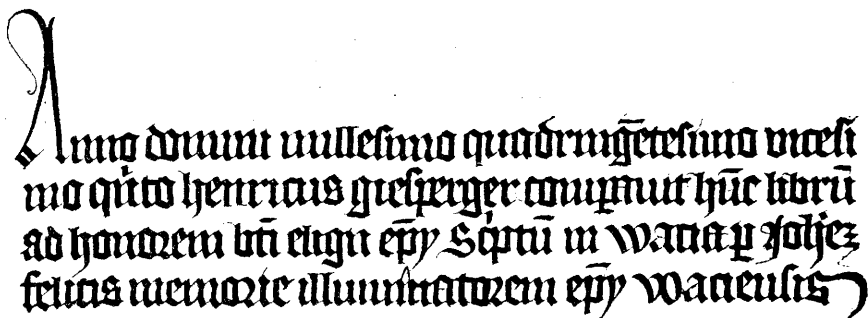 Anno domini millesimo quadringētesimo vicesi
mo qůto henricus giesperger comparauit hūc librū
ad honorem bti eligii ep̄y Sc̓ptū in wacia p Johēz
felicis memorie illuminatorem ep̄y waciensis